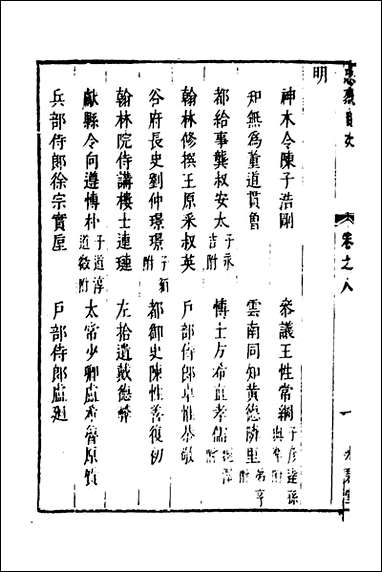 明
神木令陳子浩剛
參議王性常綱
知無為董道貫曾
雲南同知黃德隣里
都給事龔叔安太
博士方希直孝儒
翰林修撰王原采叔英
戶部侍郎卓惟恭敬
谷府長史劉仲璟璟
都御史陳性善復初
翰林院侍講樓士連璉
左拾遺戴德彝
獻縣令向遵博朴子道淳道敬附
太常少卿盧希魯原質
兵部侍郎徐宗實垕
戶部侍郎盧迥
卷之八
一